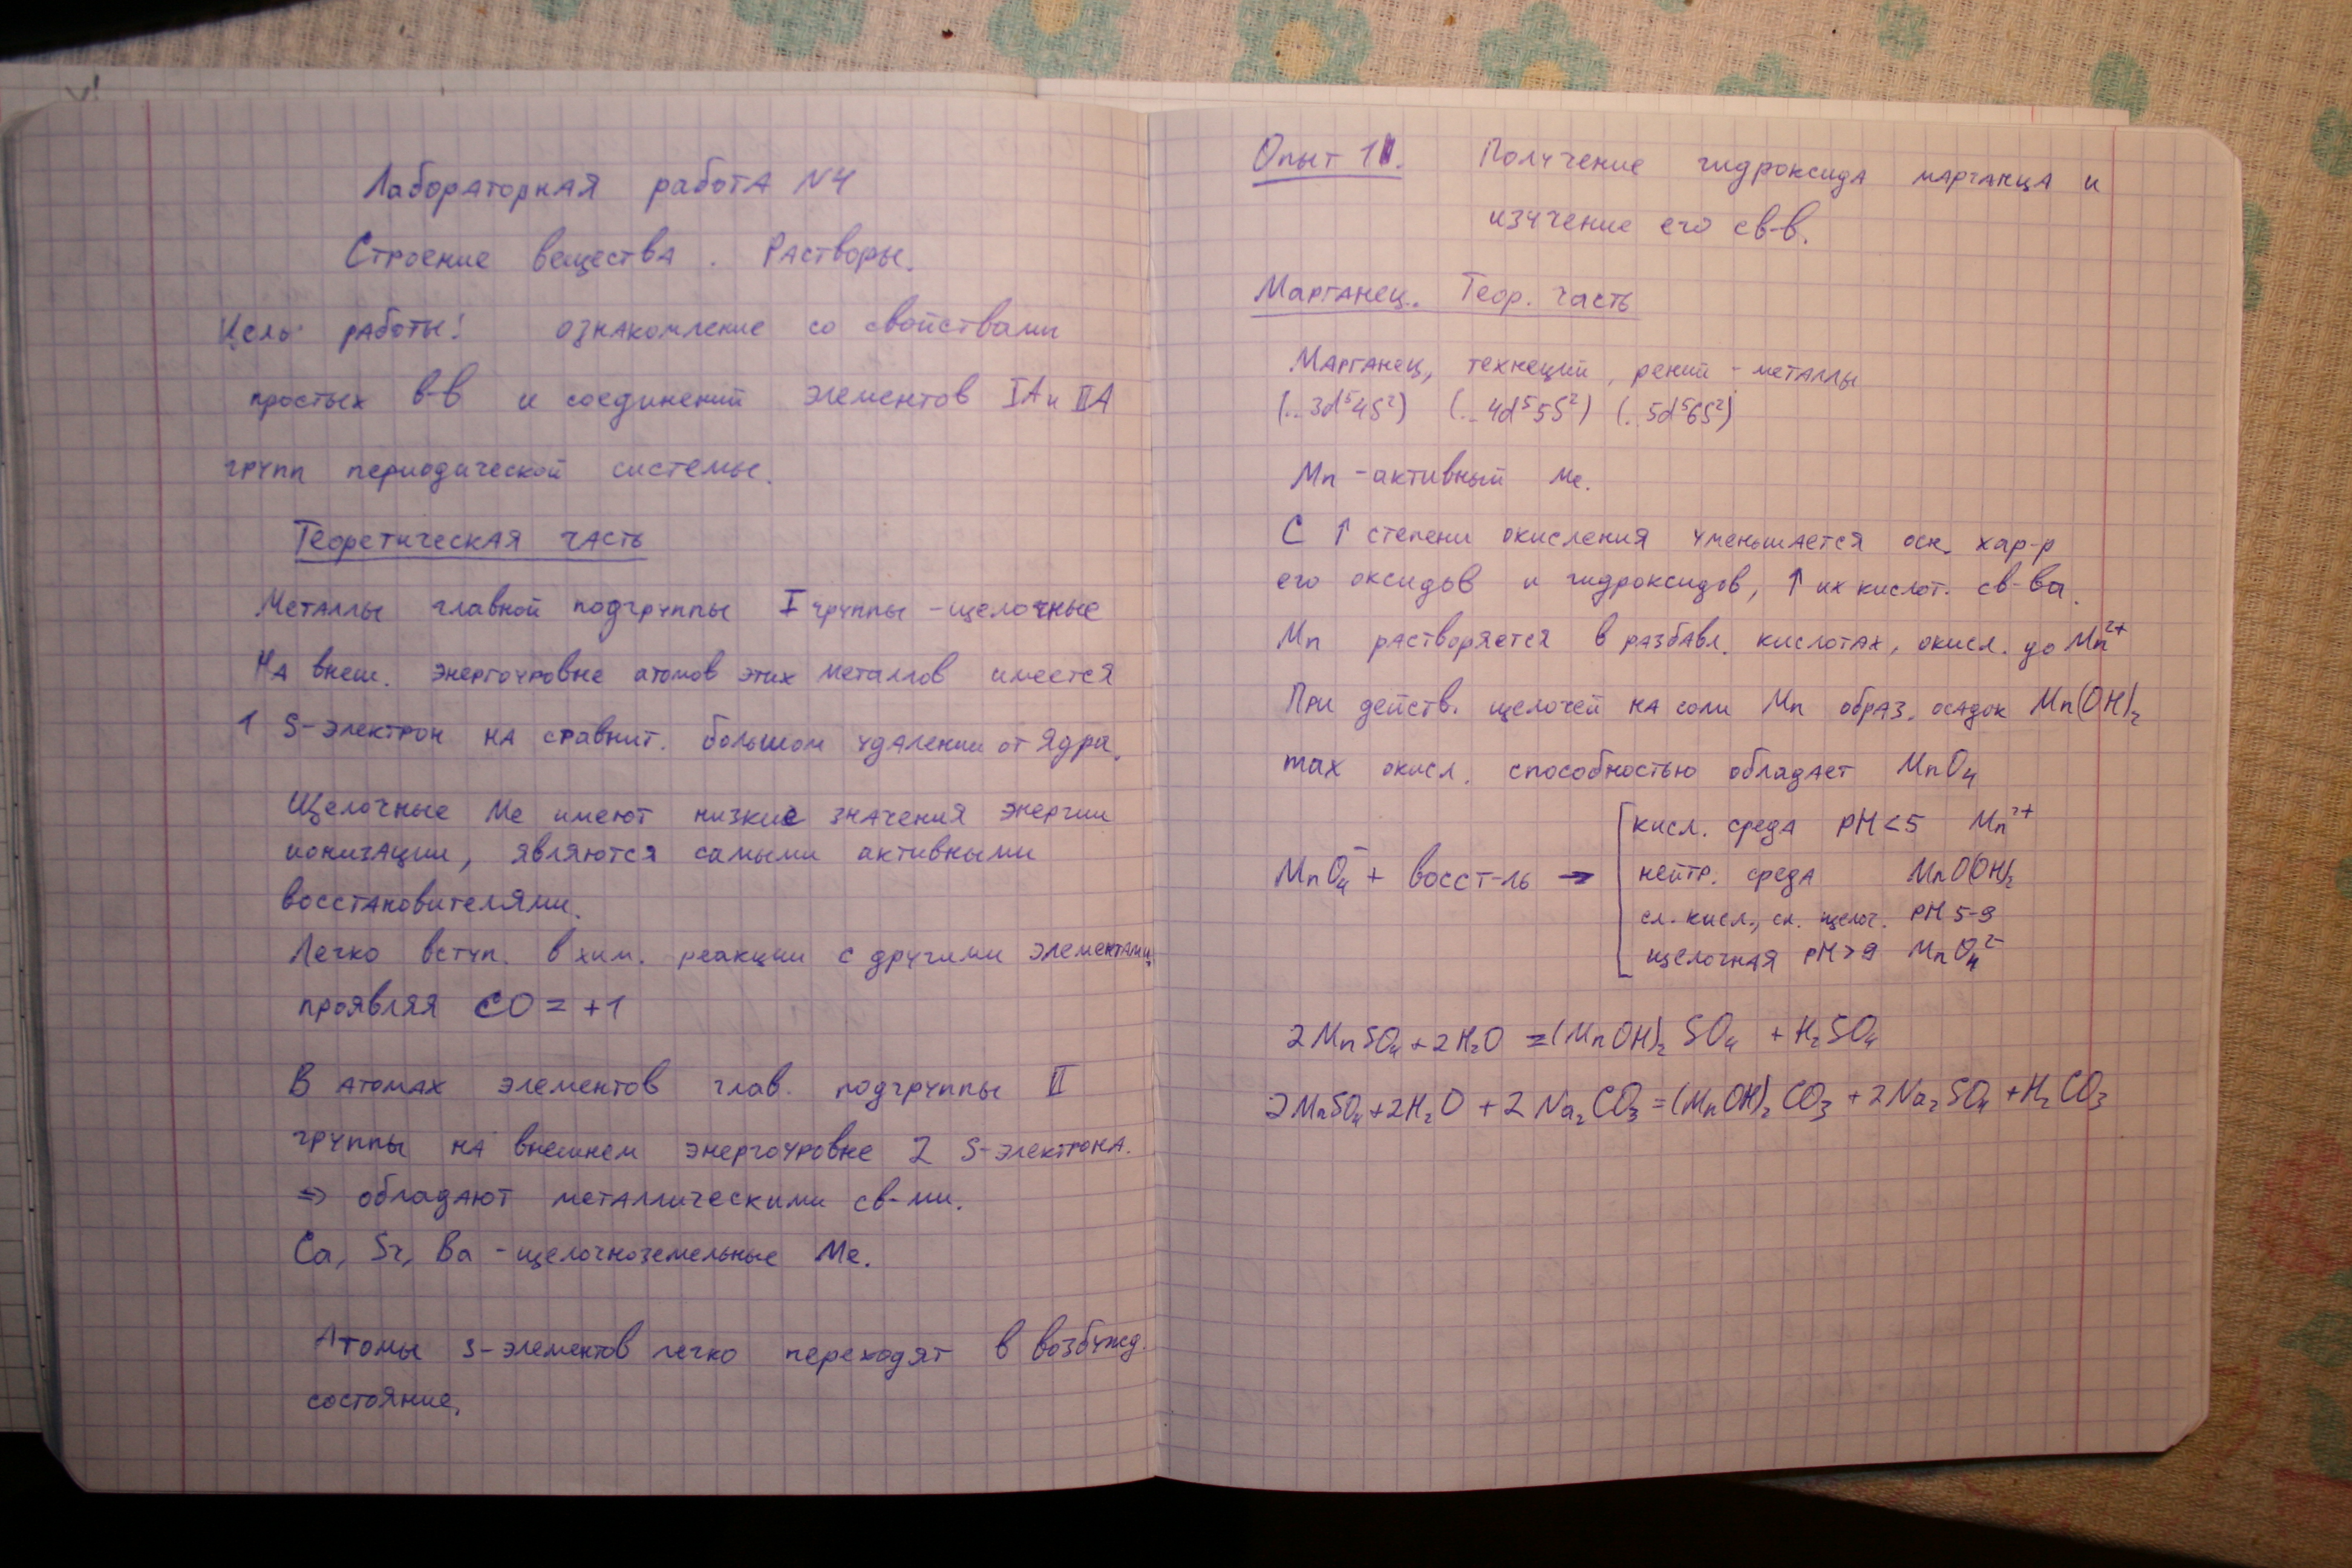 Лабораторная работа №4
Строение вещества. Растворы.
Цель работы: ознакомление со свойствами
простых в-в и соединений элементов IA и IIA
групп периодической системы.
Теоретическая часть
Металлы главной подгруппы I группы - щелочные
На внеш. энергоуровне атомов этих металлов имеется
1 S-электрон на сравнит. большом удалении от ядра.
Щелочные Me имеют низкие значения энергии
ионизации, являются самыми активными
восстановителями.
Легко вступ. в хим. реакции с другими элементами,
проявляя CO = +1
В атомах элементов глав. подгруппы II
группы на внешнем энергоуровне 2 S-электрона.
=> обладают металлическими св-ми.
Ca, Sr, Ba - щелочноземельные Me.
Атомы s-элементов легко переходят в возбужд.
состояние.
Опыт 11. Получение гидроксида марганца и
изучение его св-в.
Марганец. Теор. часть
Марганец, технеций, рений - металлы
(..3d⁵4S²) (..4d⁵5S²) (..5d⁵6S²)
Mn - активный Me.
С ↑ степени окисления уменьшается осн. хар-р
его оксидов и гидроксидов, ↑ их кислот. св-ва.
Mn растворяется в разбавл. кислотах, окисл. до Mn²⁺
При действ. щелочей на соли Mn образ. осадок Mn(OH)₂
max окисл. способностью обладает MnO₄
MnO₄⁻ + восст-ль → [ кисл. среда pH<5 Mn²⁺
нейтр. среда MnO(OH)₂
сл. кисл., сл. щелоч. pH 5-9
щелочная pH>9 MnO₄²⁻
2MnSO₄ + 2H₂O = (MnOH)₂SO₄ + H₂SO₄
2MnSO₄ + 2H₂O + 2Na₂CO₃ = (MnOH)₂CO₃ + 2Na₂SO₄ + H₂CO₃